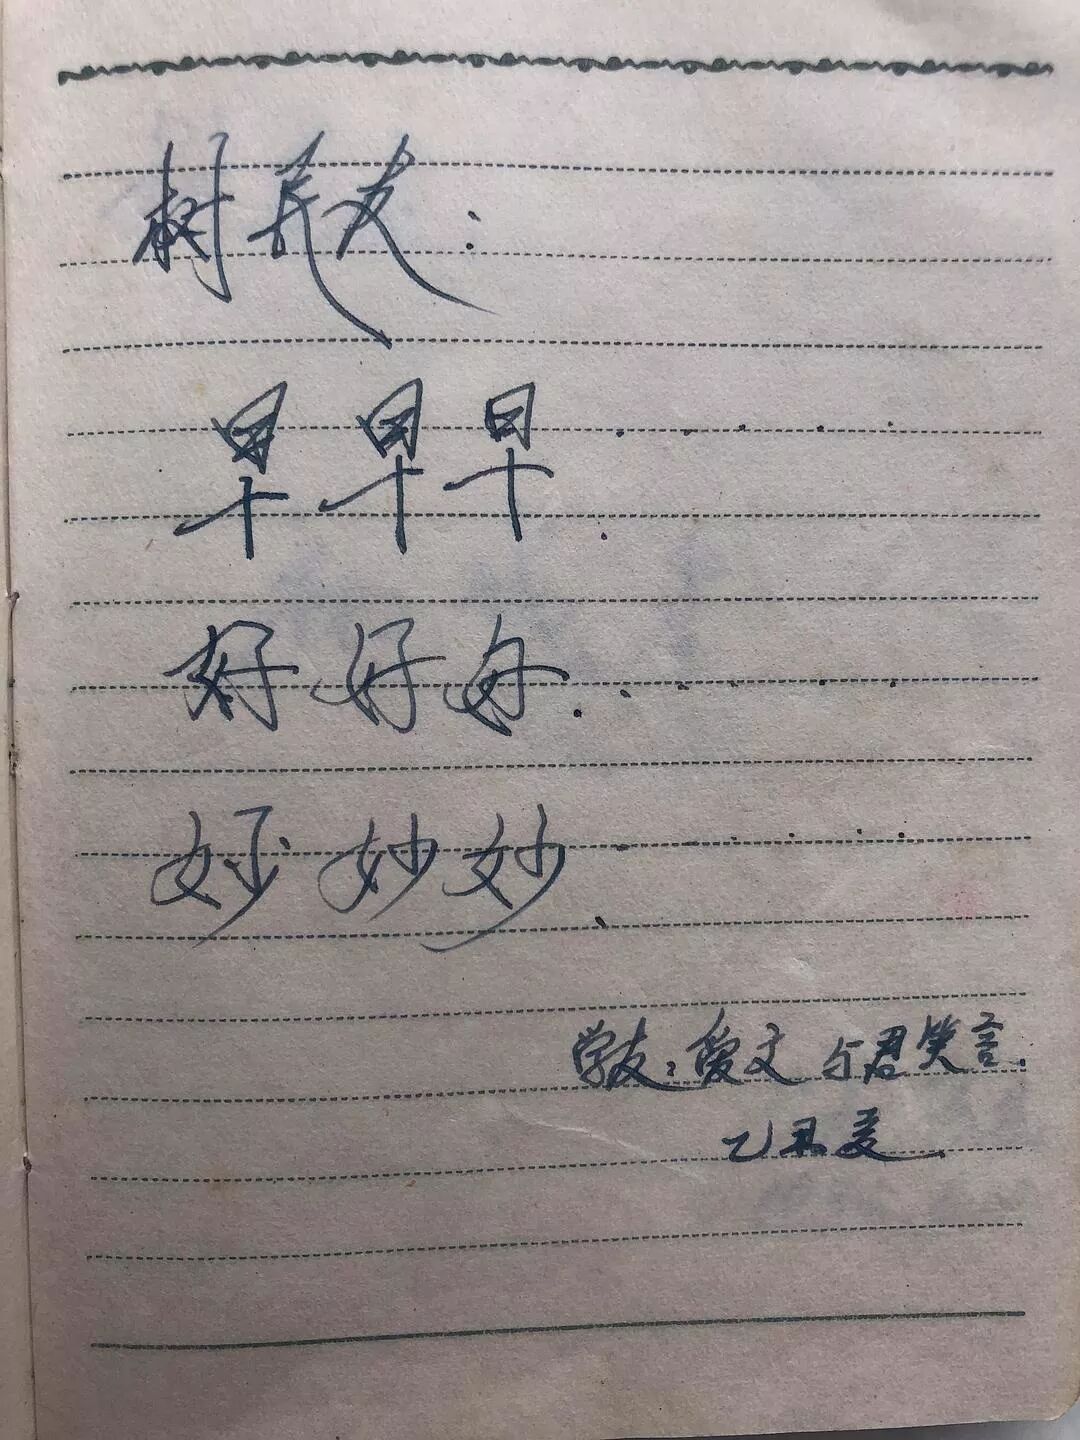 树友：
早早早......
好好好......
妙妙妙......
学友：爱文与君笑言.
乙丑夏